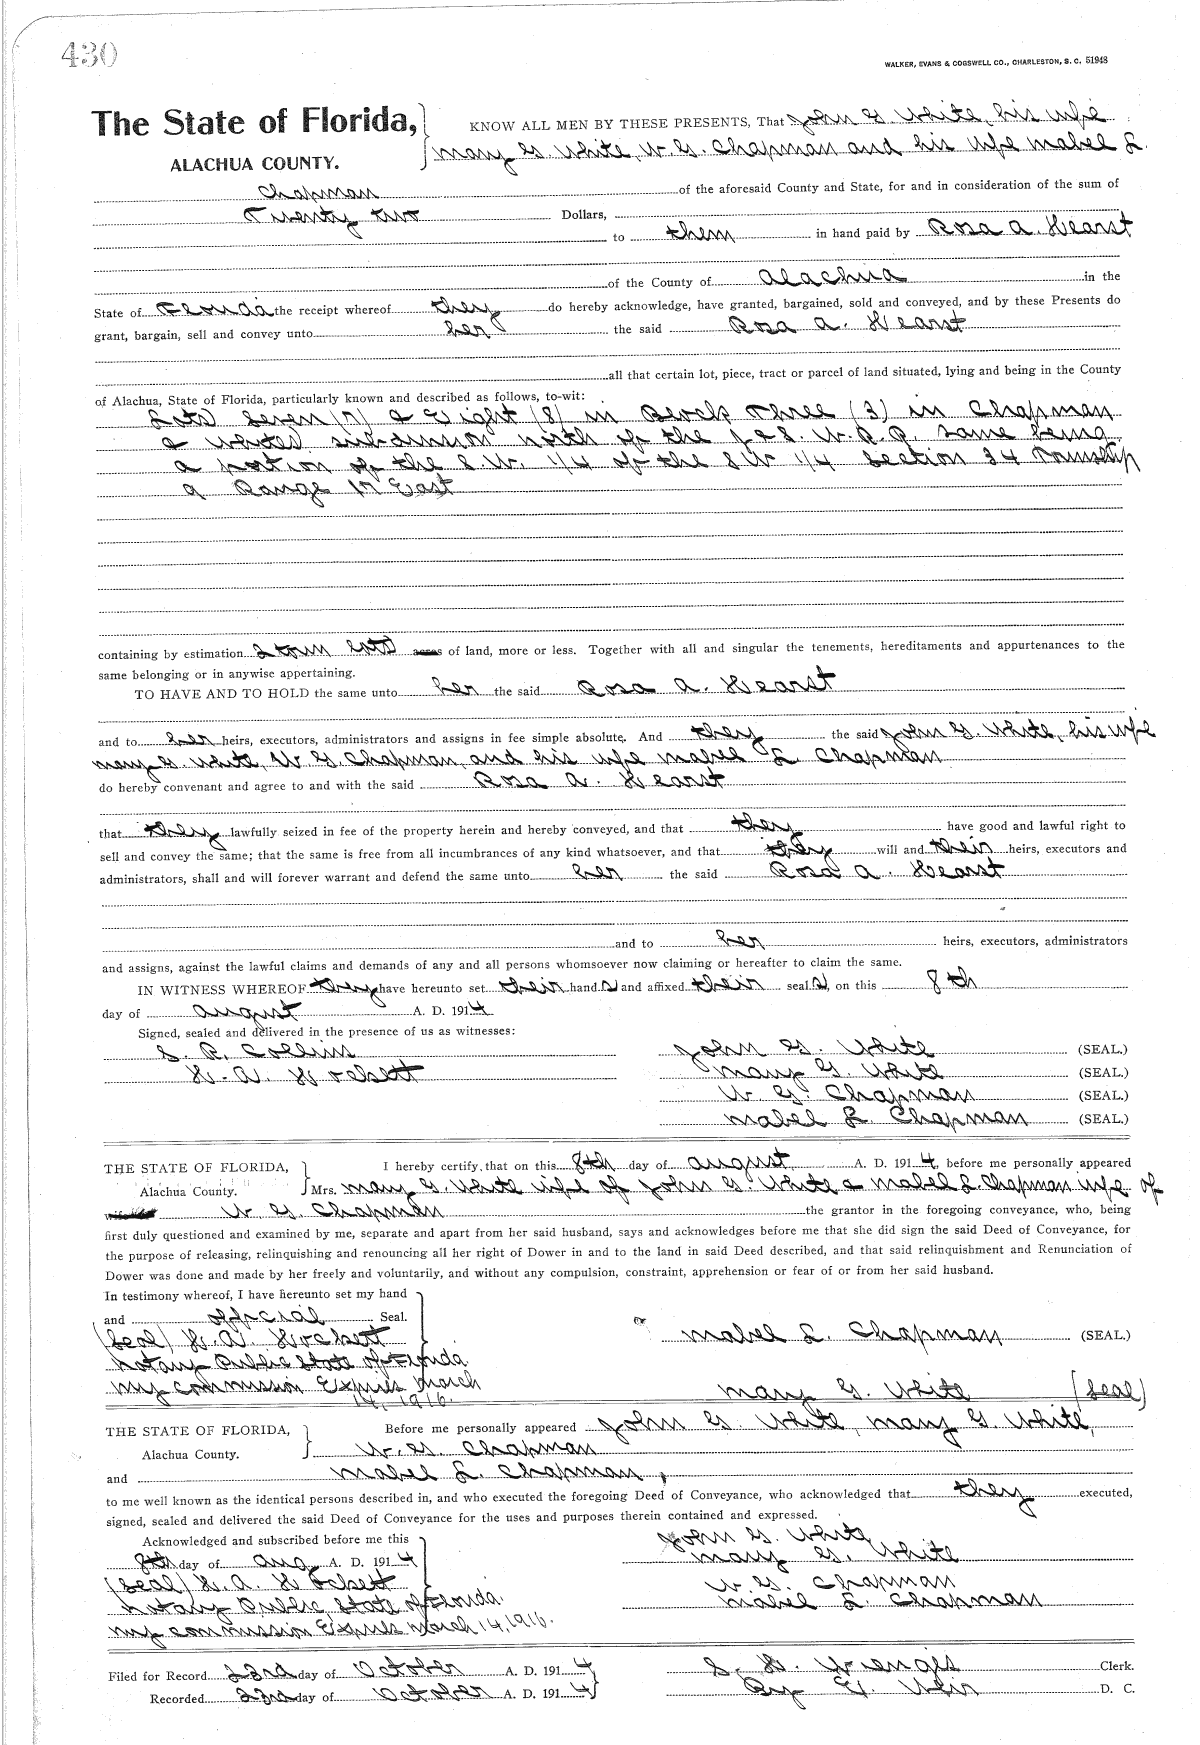 430
WALKER, EVANS & COGSWELL CO., CHARLESTON, S. C. 51948
The State of Florida, KNOW ALL MEN BY THESE PRESENTS, That John G. White, his wife
ALACHUA COUNTY. Mary G. White, W. G. Chapman and his wife Mabel L.
Chapman of the aforesaid County and State, for and in consideration of the sum of
Twenty two Dollars,
to them in hand paid by Rosa A. Hearst
of the County of Alachua in the
State of Florida the receipt whereof they do hereby acknowledge, have granted, bargained, sold and conveyed, and by these Presents do
grant, bargain, sell and convey unto her the said Rosa A. Hearst
all that certain lot, piece, tract or parcel of land situated, lying and being in the County
of Alachua, State of Florida, particularly known and described as follows, to-wit:
Lots Seven (7) & Eight (8) in Block Three (3) in Chapman
& Whites subdivision north of the J & S. W. R. R. same being
a portion of the S.W. 1/4 of the SW 1/4 Section 34 Township
9 Range 17 East
containing by estimation 2 town lots acres of land, more or less. Together with all and singular the tenements, hereditaments and appurtenances to the
same belonging or in anywise appertaining.
TO HAVE AND TO HOLD the same unto her the said Rosa A. Hearst
and to her heirs, executors, administrators and assigns in fee simple absolute. And they the said John G. White, his wife
Mary G. White, W. G. Chapman, and his wife Mabel L. Chapman
do hereby convenant and agree to and with the said Rosa A. Hearst
that they lawfully seized in fee of the property herein and hereby conveyed, and that they have good and lawful right to
sell and convey the same; that the same is free from all incumbrances of any kind whatsoever, and that they will and their heirs, executors and
administrators, shall and will forever warrant and defend the same unto her the said Rosa A. Hearst
and to her heirs, executors, administrators
and assigns, against the lawful claims and demands of any and all persons whomsoever now claiming or hereafter to claim the same.
IN WITNESS WHEREOF they have hereunto set their hand s and affixed their seal s, on this 8th
day of August A. D. 1914
Signed, sealed and delivered in the presence of us as witnesses:
S. R. Collins John G. White (SEAL.)
H. A. Hockett Mary G. White (SEAL.)
W. G. Chapman (SEAL.)
Mabel L. Chapman (SEAL.)
THE STATE OF FLORIDA, I hereby certify that on this 8th day of August A. D. 1914, before me personally appeared
Alachua County. Mrs. Mary G. White wife of John G. White & Mabel L. Chapman wife of
W. G. Chapman the grantor in the foregoing conveyance, who, being
first duly questioned and examined by me, separate and apart from her said husband, says and acknowledges before me that she did sign the said Deed of Conveyance, for
the purpose of releasing, relinquishing and renouncing all her right of Dower in and to the land in said Deed described, and that said relinquishment and Renunciation of
Dower was done and made by her freely and voluntarily, and without any compulsion, constraint, apprehension or fear of or from her said husband.
In testimony whereof, I have hereunto set my hand
and official Seal.
(Seal) H. A. Hockett Mabel L. Chapman (SEAL.)
Notary Public State of Florida
My commission Expires March
14, 1916. Mary G. White (Seal)
THE STATE OF FLORIDA, Before me personally appeared John G. White, Mary G. White,
Alachua County. W. G. Chapman
and Mabel L. Chapman,
to me well known as the identical persons described in, and who executed the foregoing Deed of Conveyance, who acknowledged that they executed,
signed, sealed and delivered the said Deed of Conveyance for the uses and purposes therein contained and expressed.
Acknowledged and subscribed before me this John G. White
8th day of Aug A. D. 1914 Mary G. White
(Seal) H. A. Hockett W. G. Chapman
Notary Public, State of Florida. Mabel L. Chapman
My commission Expires March 14, 1916.
Filed for Record 23rd day of October A. D. 1914 S. H. Wienges Clerk.
Recorded 23rd day of October A. D. 1914 By E. Weir D. C.